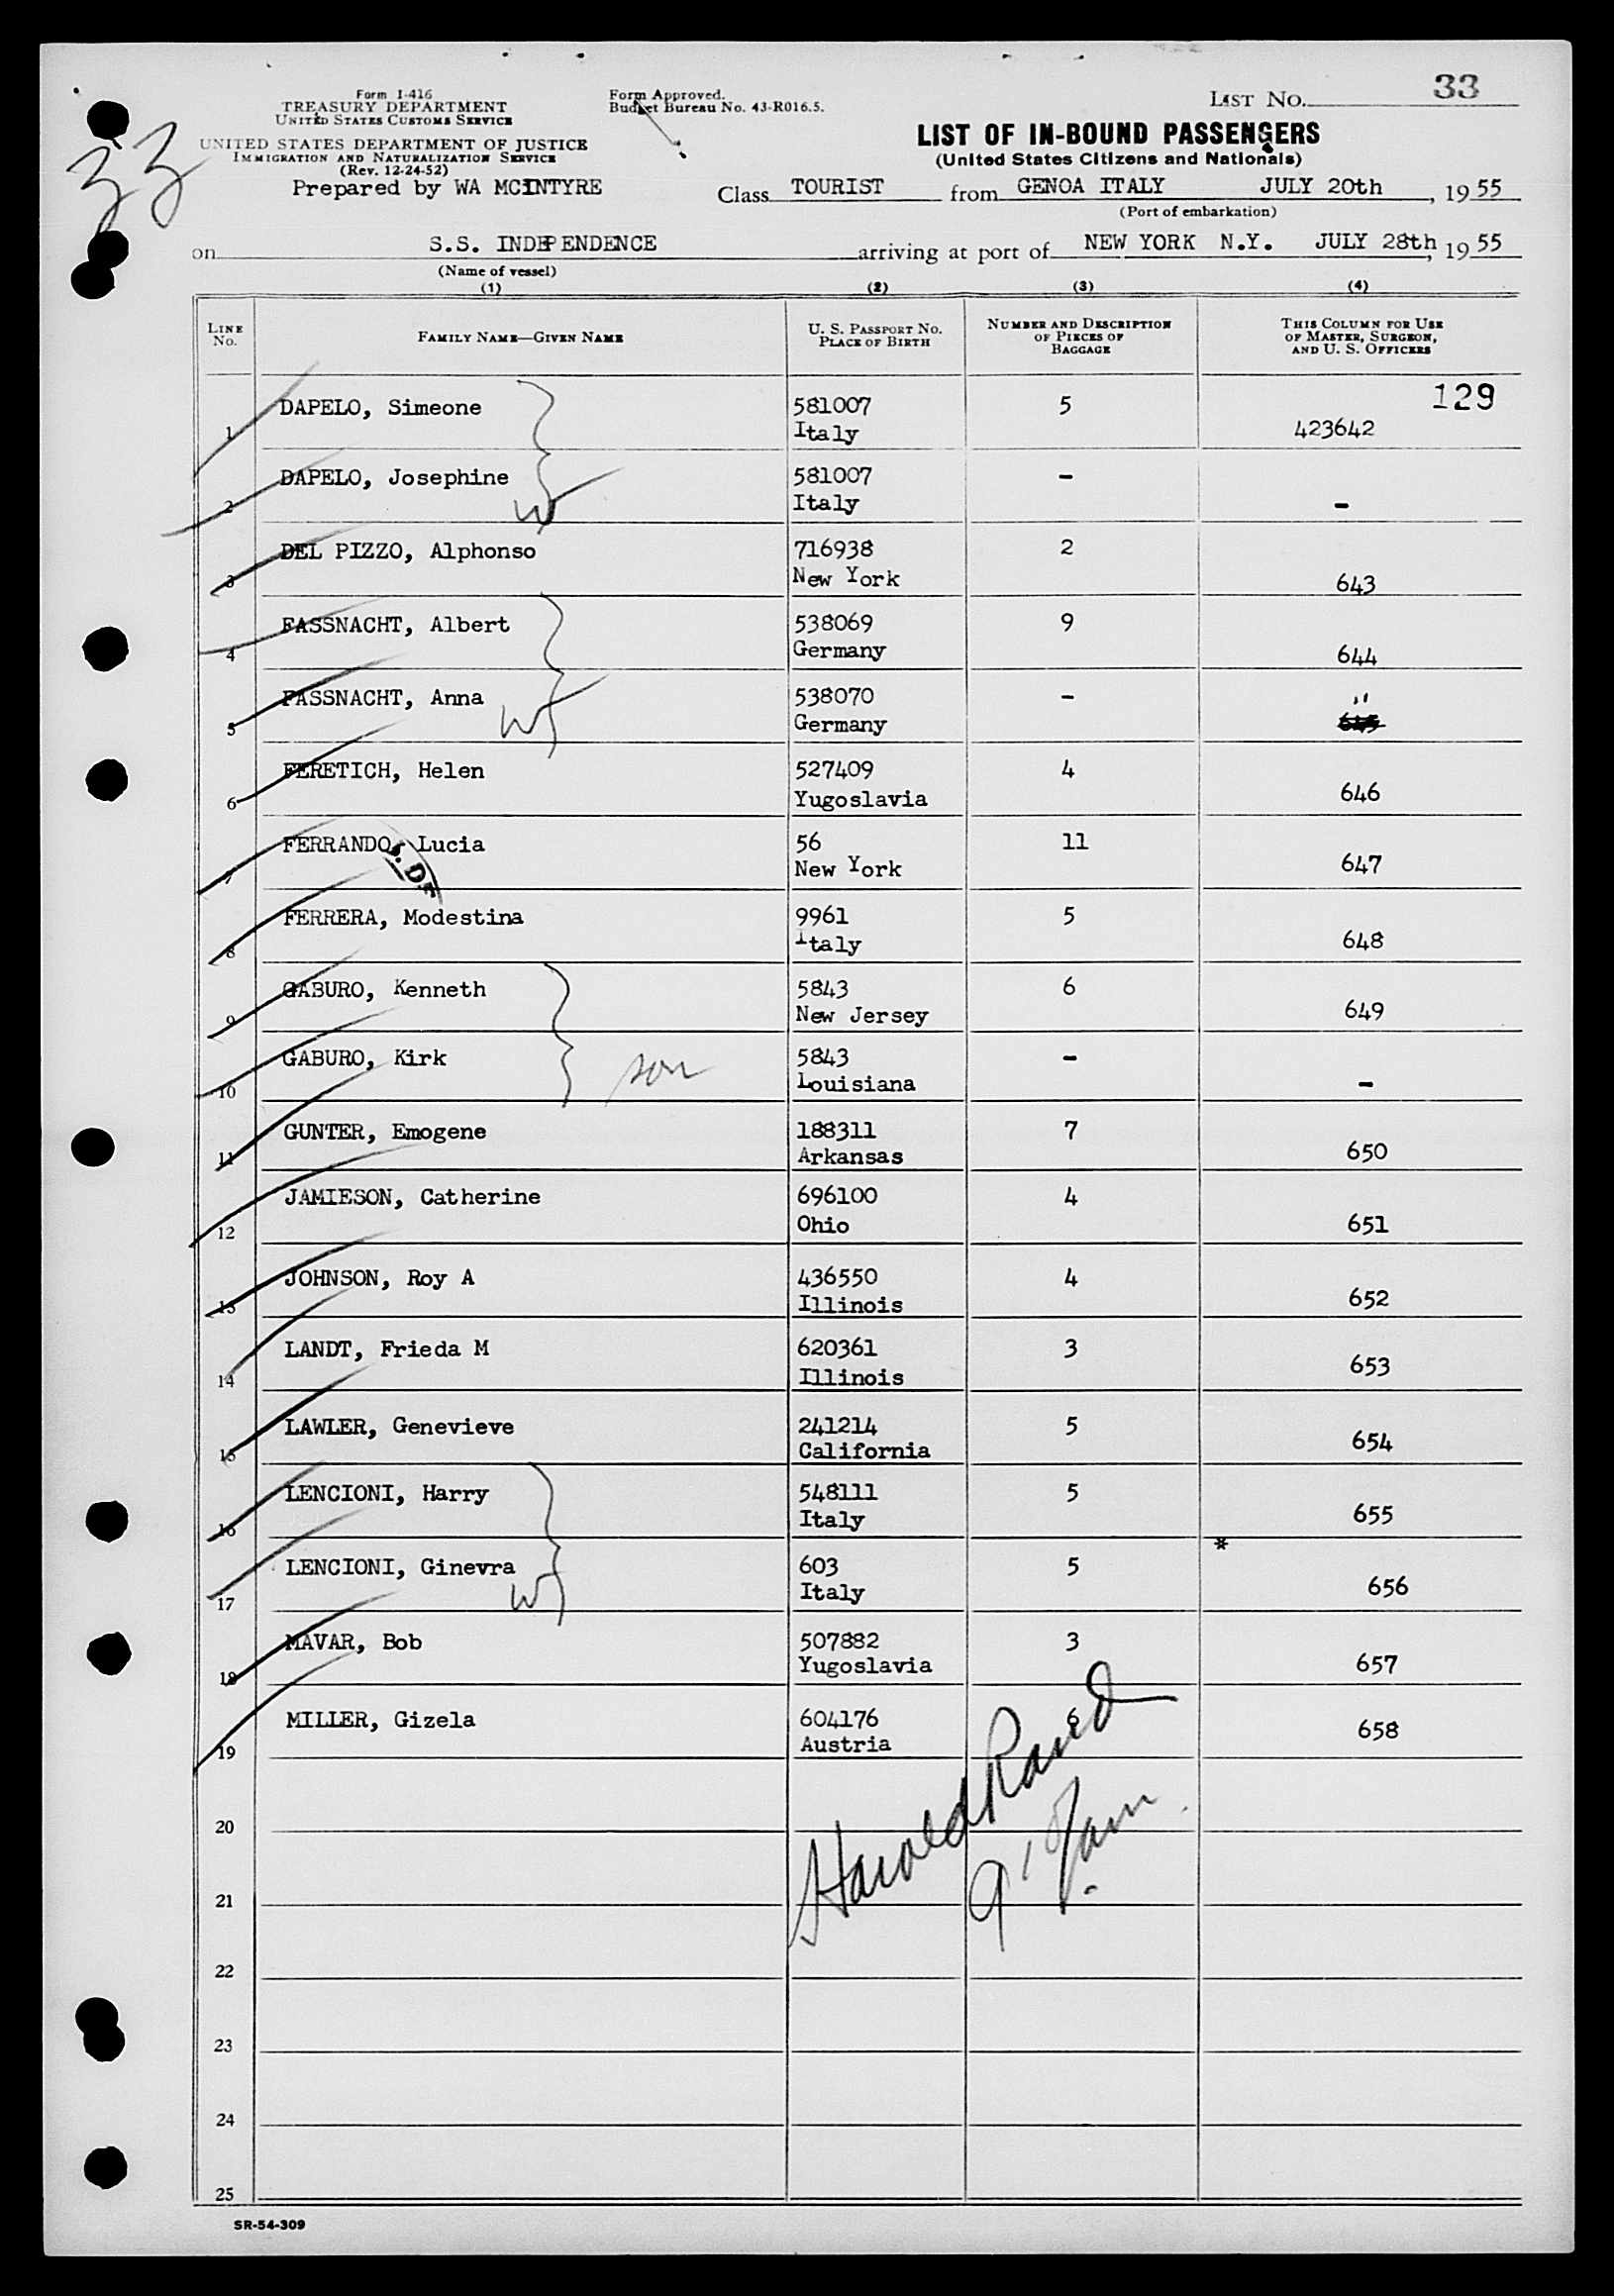 33
Form I-416
TREASURY DEPARTMENT
UNITED STATES CUSTOMS SERVICE
UNITED STATES DEPARTMENT OF JUSTICE
IMMIGRATION AND NATURALIZATION SERVICE
(Rev. 12-24-52)
Prepared by WA MCINTYRE
Form Approved.
Budget Bureau No. 43-R016.5.
LIST No. 33
LIST OF IN-BOUND PASSENGERS
(United States Citizens and Nationals)
Class TOURIST from GENOA ITALY JULY 20th, 19 55
(Port of embarkation)
on S.S. INDEPENDENCE arriving at port of NEW YORK N.Y. JULY 28th, 19 55
(Name of vessel)
(1) (2) (3) (4)
LINE No. FAMILY NAME—GIVEN NAME U. S. PASSPORT NO. PLACE OF BIRTH NUMBER AND DESCRIPTION OF PIECES OF BAGGAGE THIS COLUMN FOR USE OF MASTER, SURGEON, AND U. S. OFFICERS
129
1 DAPELO, Simeone 581007 Italy 5 423642
2 DAPELO, Josephine W 581007 Italy - -
3 DEL PIZZO, Alphonso 716938 New York 2 643
4 FASSNACHT, Albert 538069 Germany 9 644
5 FASSNACHT, Anna W 538070 Germany - " 645
6 FERETICH, Helen 527409 Yugoslavia 4 646
7 FERRANDO, Lucia 56 New York 11 647
8 FERRERA, Modestina 9961 Italy 5 648
9 GABURO, Kenneth 5843 New Jersey 6 649
10 GABURO, Kirk son 5843 Louisiana - -
11 GUNTER, Emogene 188311 Arkansas 7 650
12 JAMIESON, Catherine 696100 Ohio 4 651
13 JOHNSON, Roy A 436550 Illinois 4 652
14 LANDT, Frieda M 620361 Illinois 3 653
15 LAWLER, Genevieve 241214 California 5 654
16 LENCIONI, Harry 548111 Italy 5 655
17 LENCIONI, Ginevra W 603 Italy 5 * 656
18 MAVAR, Bob 507882 Yugoslavia 3 657
19 MILLER, Gizela 604176 Austria 6 658
Harold Rand
20
21
22
23
24
25
SR-54-309